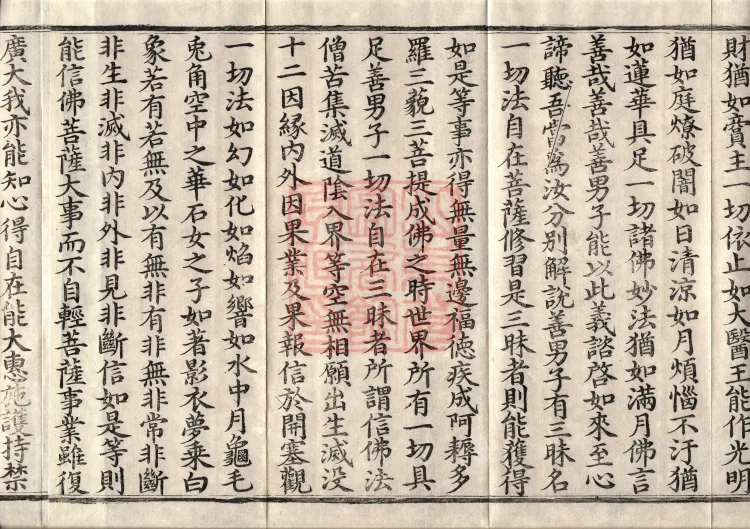 財猶如賓主一切依止如大醫王能作光明
猶如庭燎破闇如日清涼如月煩惱不汙猶
如蓮華具足一切諸佛妙法猶如滿月佛言
善哉善哉善男子能以此義諮啓如來至心
諦聽吾當為汝分別解說善男子有三昧名
一切法自在菩薩修習是三昧者則能獲得
如是等事亦得無量無邊福德疾成阿耨多
羅三藐三菩提成佛之時世界所有一切具
足善男子一切法自在三昧者所謂信佛法
僧苦集滅道陰入界等空無相願出生滅没
十二因緣內外因果業及果報信於開塞觀
一切法如幻如化如焰如響如水中月龜毛
兎角空中之華石女之子如著影衣夢乗白
象若有若無及以有無非有非無非常非斷
非生非滅非內非外非見非斷信如是等則
能信佛菩薩大事而不自輕菩薩事業雖復
廣大我亦能知心得自在能大惠施護持禁